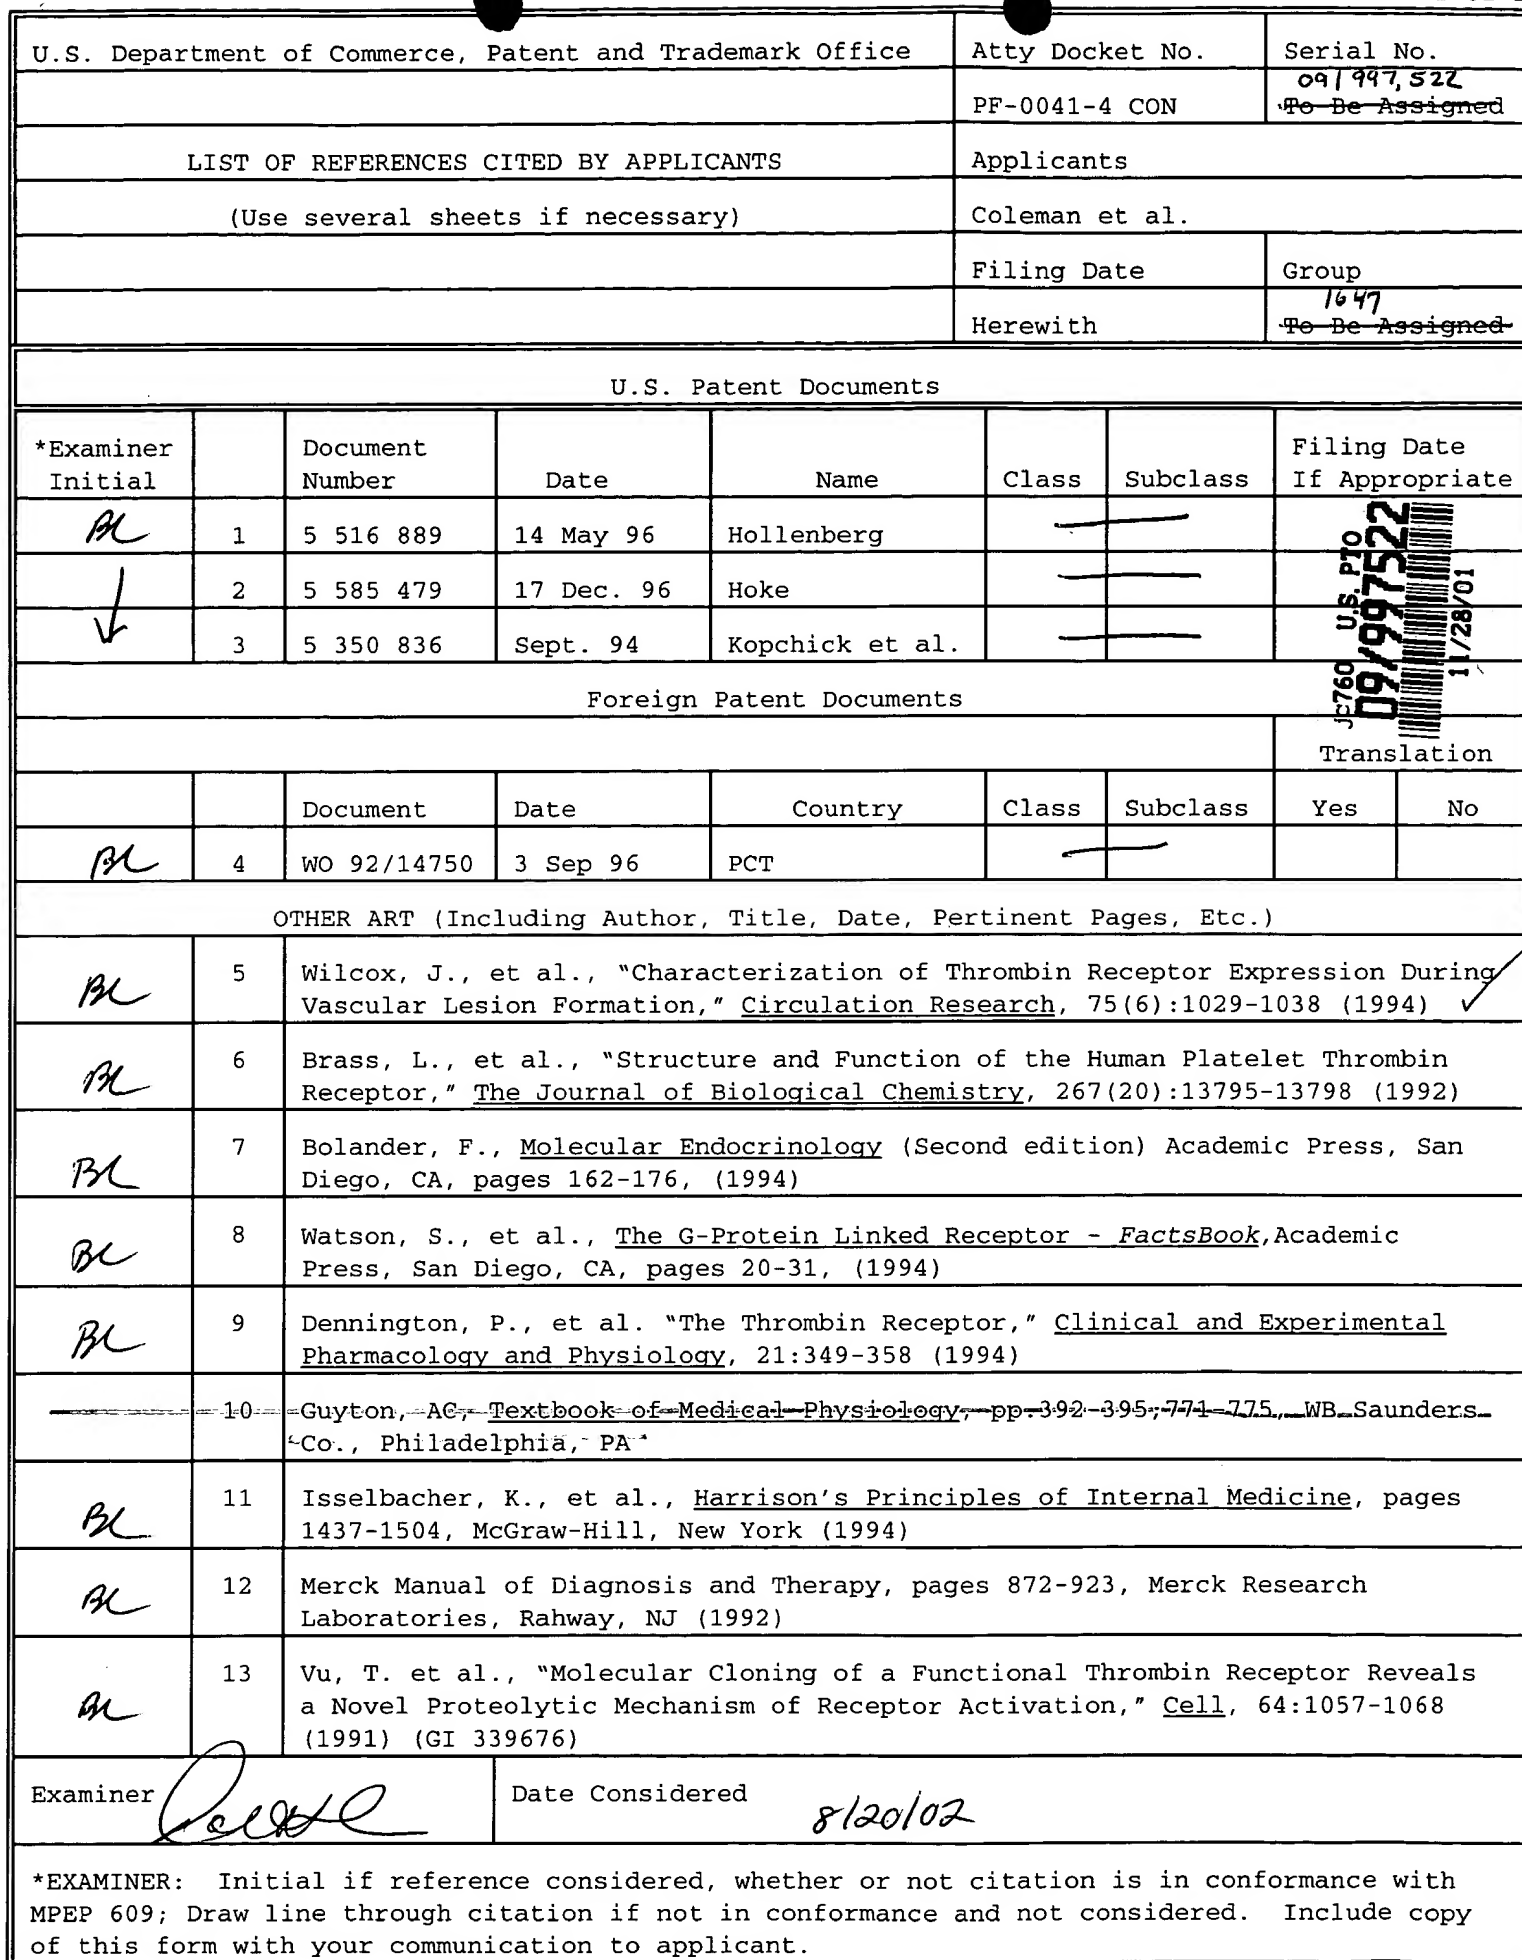 U.S. Department of Commerce, Patent and Trademark Office
Atty Docket No.
Serial No.
09/997,522
PF-0041-4 CON
To Be Assigned
LIST OF REFERENCES CITED BY APPLICANTS
Applicants
(Use several sheets if necessary)
Coleman et al.
Filing Date
Group
1647
Herewith
To Be Assigned
U.S. Patent Documents
*Examiner Initial
Document Number
Date
Name
Class
Subclass
Filing Date If Appropriate
BL 1 5 516 889 14 May 96 Hollenberg
2 5 585 479 17 Dec. 96 Hoke
3 5 350 836 Sept. 94 Kopchick et al.
jc760 U.S. PTO
09/997522
11/28/01
Foreign Patent Documents
Translation
Document Date Country Class Subclass Yes No
BL 4 WO 92/14750 3 Sep 96 PCT
OTHER ART (Including Author, Title, Date, Pertinent Pages, Etc.)
BL 5 Wilcox, J., et al., "Characterization of Thrombin Receptor Expression During
Vascular Lesion Formation," Circulation Research, 75(6):1029-1038 (1994)
BL 6 Brass, L., et al., "Structure and Function of the Human Platelet Thrombin
Receptor," The Journal of Biological Chemistry, 267(20):13795-13798 (1992)
BL 7 Bolander, F., Molecular Endocrinology (Second edition) Academic Press, San
Diego, CA, pages 162-176, (1994)
BL 8 Watson, S., et al., The G-Protein Linked Receptor - FactsBook,Academic
Press, San Diego, CA, pages 20-31, (1994)
BL 9 Dennington, P., et al. "The Thrombin Receptor," Clinical and Experimental
Pharmacology and Physiology, 21:349-358 (1994)
10 Guyton, AC, Textbook of Medical Physiology, pp.392-395;771-775, WB Saunders
Co., Philadelphia, PA
BL 11 Isselbacher, K., et al., Harrison's Principles of Internal Medicine, pages
1437-1504, McGraw-Hill, New York (1994)
BL 12 Merck Manual of Diagnosis and Therapy, pages 872-923, Merck Research
Laboratories, Rahway, NJ (1992)
BL 13 Vu, T. et al., "Molecular Cloning of a Functional Thrombin Receptor Reveals
a Novel Proteolytic Mechanism of Receptor Activation," Cell, 64:1057-1068
(1991) (GI 339676)
Examiner
Date Considered
8/20/02
*EXAMINER: Initial if reference considered, whether or not citation is in conformance with
MPEP 609; Draw line through citation if not in conformance and not considered. Include copy
of this form with your communication to applicant.